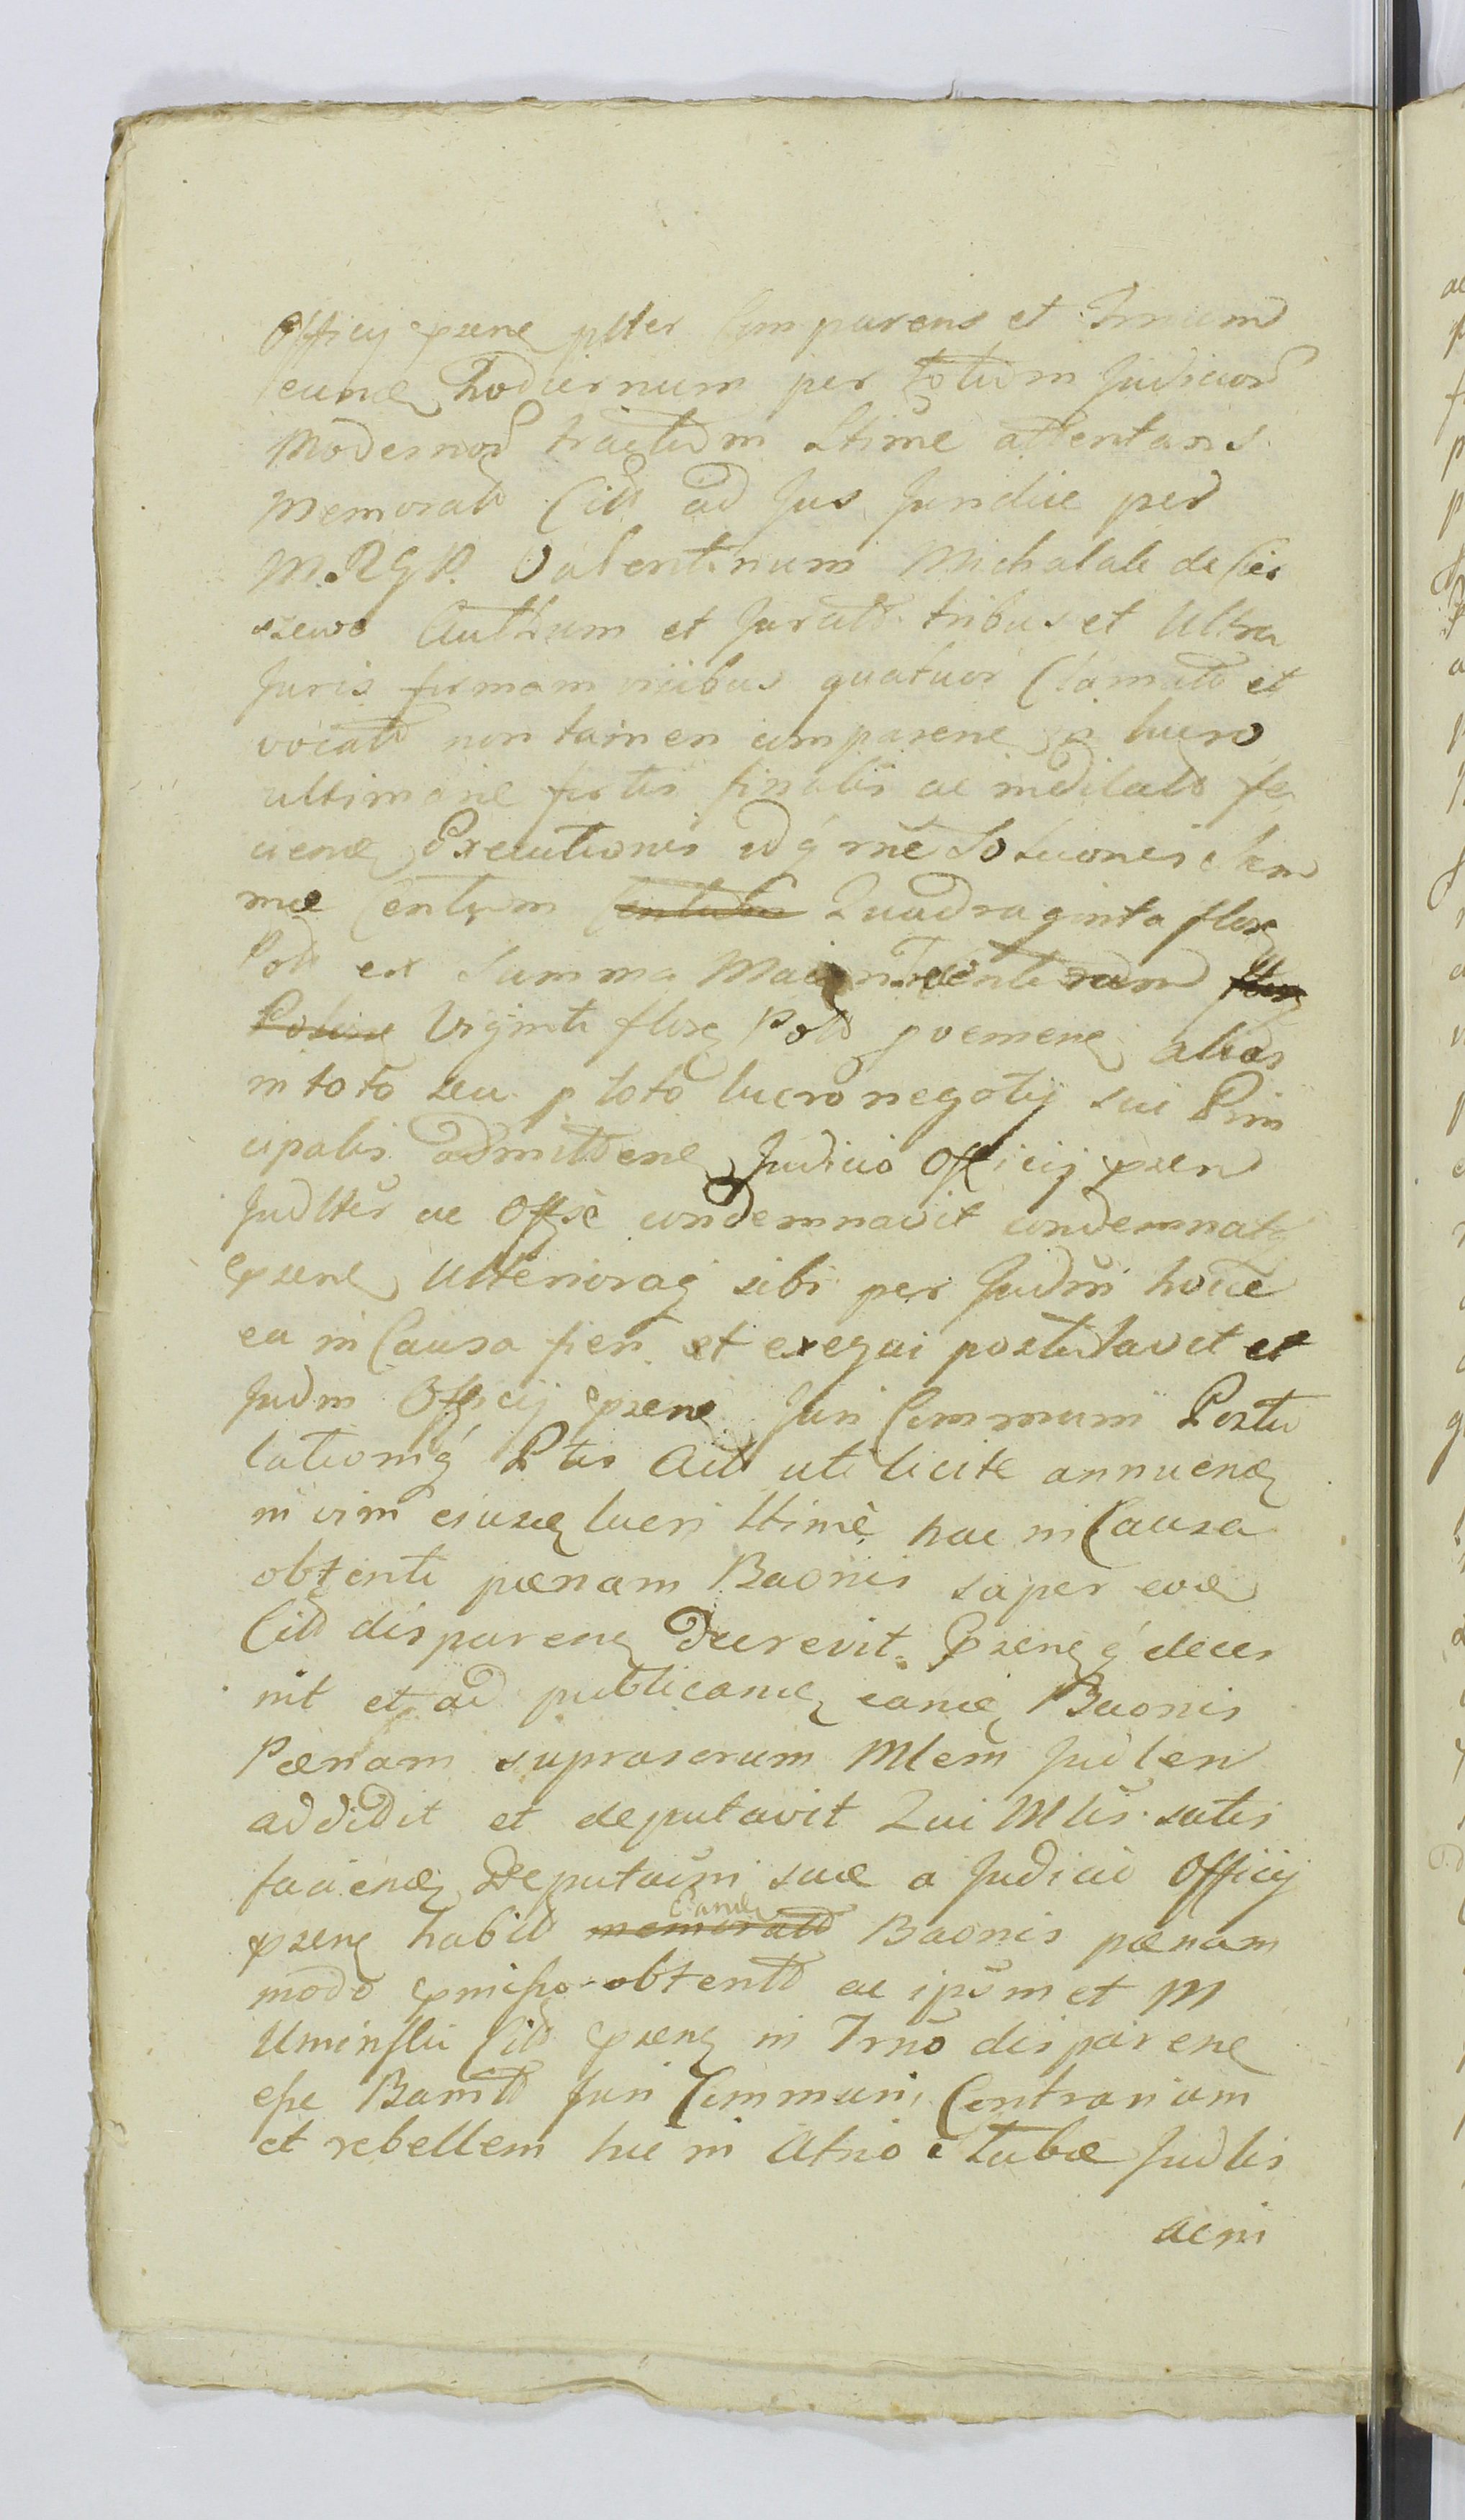 Officij psene pltter Comparens et Trnum
eunde hodiernum per totum Judicior
Modernor tractum Ltime attentans
Memorat Citt ad Jus Juridice per
M.R.G.R. Valentinum Michalak de Cie
szewo Authum et Jurat tribus et Ultra
Juris formam vicibus quatuor Clamatt et
vocatt non tamen comparene in lucro
ultimarie sortis finalis ac indilatt fa
ciene Executionis idq rne Solucionis Sum
mae Centum Centum Quadraginta flor
Poll ex Summa Maiori Trecentorum flor
Polone Viginti flore Poll poemene alias
in toto seu p toto lucro negotij sui Prin
cipalis admittene Judicio Officij psen
Judltter ac Offse condemnavit condemnatq
psene Ulterioraq sibi per Judm hocce
ea in Causa fieri et exequi postulavit et
Judm Officij psene Juri Communi Postu
lationiq Ptis Act uti licite annuene
in vim eiusde lucri Ltime hac in Causa
obtenti paenam Baonis super eode
Citt disparene Decrevit Psene q decer
nit et ad publicande eande Baonis
Paenam suprascrum Mlem Judlen
addidit et deputavit Qui Mlis satis
faciene Deputaoni suae a Judicio Officij
psene habitt memoratt Eande Baonis paenam
modo pmisso obtentt ac ipsum et M
Uminski Citt psene in Trno disparene
esse Banitt Juri Communi Contrarium
et rebellem hic in Atrio Stubae Judlis
ac in